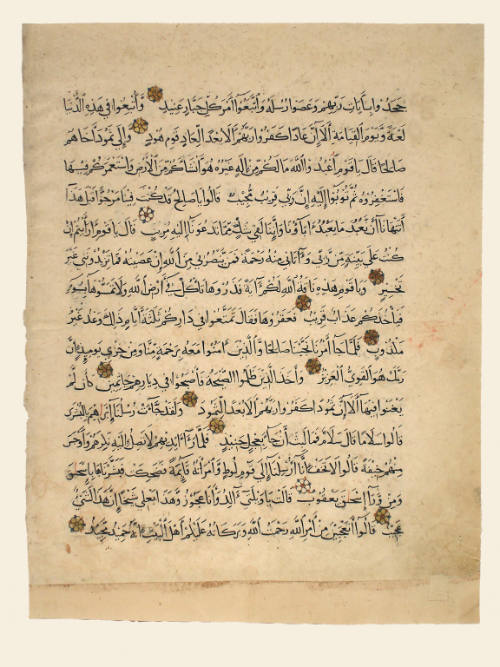 جحدوا بآيات ربهم وعصوا رسله واتبعوا أمر كل جبار عنيد وأتبعوا في هذه الدنيا
لعنة ويوم القيامة ألا إن عادا كفروا ربهم ألا بعدا لعاد قوم هود وإلى ثمود أخاهم
صالحا قال يا قوم اعبدوا الله ما لكم من إله غيره هو أنشأكم من الأرض واستعمركم فيها
فاستغفروه ثم توبوا إليه إن ربي قريب مجيب قالوا يا صالح قد كنت فينا مرجوا قبل هذا
أتنهانا أن نعبد ما يعبد آباؤنا وإننا لفي شك مما تدعونا إليه مريب قال يا قوم أرأيتم إن
كنت على بينة من ربي وآتاني منه رحمة فمن ينصرني من الله إن عصيته فما تزيدونني غير
تخسير ويا قوم هذه ناقة الله لكم آية فذروها تأكل في أرض الله ولا تمسوها بسوء
فيأخذكم عذاب قريب فعقروها فقال تمتعوا في داركم ثلثة أيام ذلك وعد غير
مكذوب فلما جاء أمرنا نجينا صالحا والذين آمنوا معه برحمة منا ومن خزي يومئذ إن
ربك هو القوي العزيز وأخذ الذين ظلموا الصيحة فأصبحوا في ديارهم جاثمين كأن لم
يغنوا فيها ألا إن ثمود كفروا ربهم ألا بعدا لثمود ولقد جاءت رسلنا إبرهيم بالبشرى
قالوا سلاما قال سلام فما لبث أن جاء بعجل حنيذ فلما رآ أيديهم لا تصل إليه نكرهم وأوجس
منهم خيفة قالوا لا تخف إنا أرسلنا إلى قوم لوط وامرأته قائمة فضحكت فبشرناها بإسحق
ومن وراء إسحق يعقوب قالت يا ويلتى أألد وأنا عجوز وهذا بعلي شيخا إن هذا لشيء
عجيب قالوا أتعجبين من أمر الله رحمت الله وبركاته عليكم أهل البيت إنه حميد مجيد